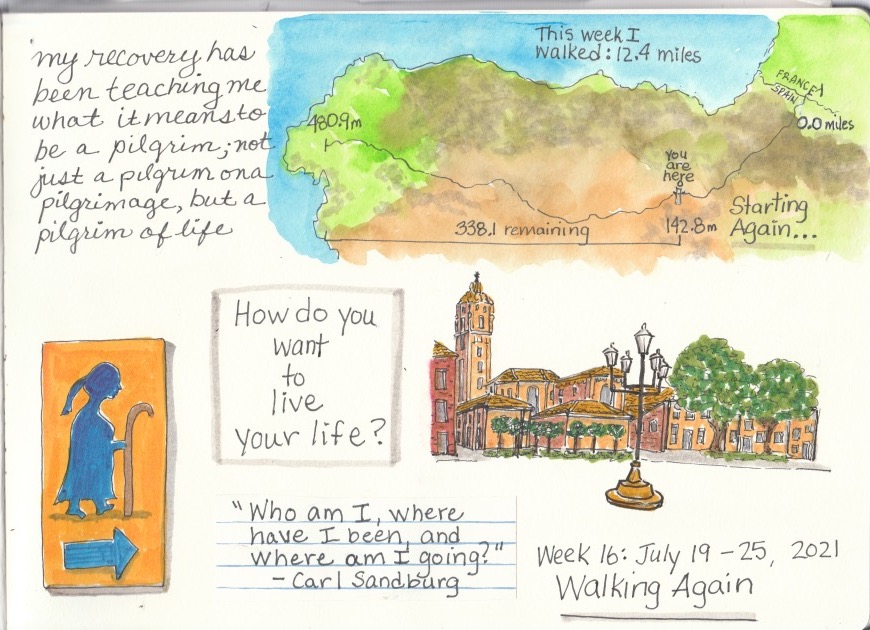 my recovery has
been teaching me
what it means to
be a pilgrim; not
just a pilgrim on a
pilgrimage, but a
pilgrim of life
This week I
walked: 12.4 miles
FRANCE
SPAIN
480.9m
0.0 miles
you
are
here
338.1 remaining
142.8m
Starting
Again...
How do you
want
to
live
your life?
"Who am I, where
have I been, and
where am I going?"
- Carl Sandburg
Week 16: July 19 - 25, 2021
Walking Again